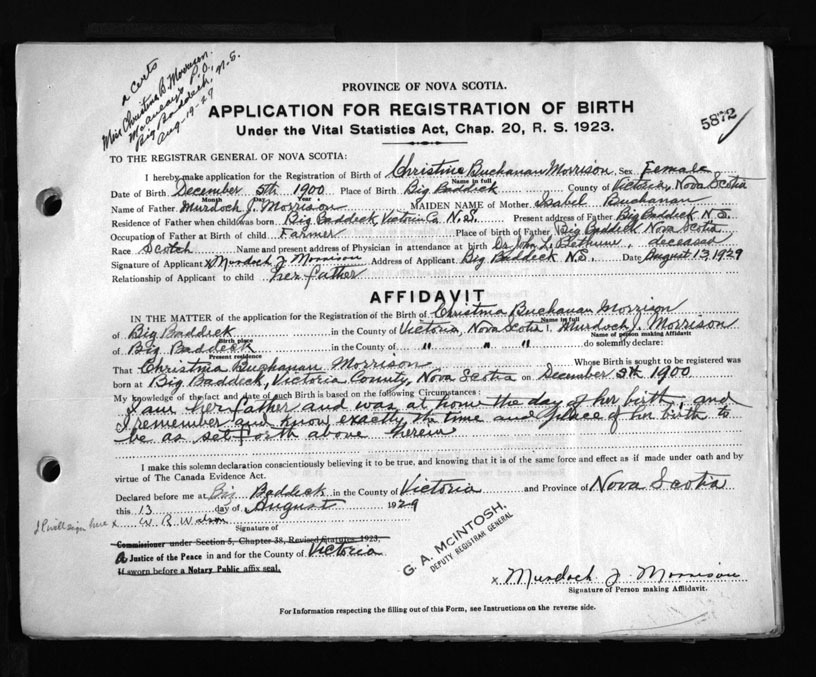 2 certs
Miss Christina B. Morrison
McAulay's P.O.
Big Baddeck, N.S.
Aug-19-29
PROVINCE OF NOVA SCOTIA.
APPLICATION FOR REGISTRATION OF BIRTH
Under the Vital Statistics Act, Chap. 20, R. S. 1923.
5872
TO THE REGISTRAR GENERAL OF NOVA SCOTIA:
I hereby make application for the Registration of Birth of Christina Buchanan Morrison Sex Female
Name in full
Date of Birth December 5th 1900 Place of Birth Big Baddeck County of Victoria, Nova Scotia
Month Day Year
Name of Father Murdoch J. Morrison MAIDEN NAME of Mother Isabel Buchanan
Residence of Father when child was born Big Baddeck, Victoria Co. N.S. Present address of Father Big Baddeck N.S.
Occupation of Father at Birth of child Farmer Place of birth of Father Big Baddeck Nova Scotia
Race Scotch Name and present address of Physician in attendance at birth Dr. John L. Bethune, deceased
Signature of Applicant x Murdoch J Morrison Address of Applicant Big Baddeck N.S. Date August 13, 1929
Relationship of Applicant to child her father
AFFIDAVIT
IN THE MATTER of the application for the Registration of the Birth of Christina Buchanan Morrison
Name in full
of Big Baddeck in the County of Victoria, Nova Scotia I, Murdoch J. Morrison
Birth place Name of person making Affidavit
of Big Baddeck in the County of " " " do solemnly declare:
Present residence
That Christina Buchanan Morrison Whose Birth is sought to be registered was
born at Big Baddeck, Victoria County, Nova Scotia on December 5th 1900
My knowledge of the fact and date of such Birth is based on the following Circumstances:
I am her father and was at home the day of her birth, and
I remember and know exactly the time and place of her birth to
be as set forth above herein
I make this solemn declaration conscientiously believing it to be true, and knowing that it is of the same force and effect as if made under oath and by
virtue of The Canada Evidence Act.
Declared before me at Big Baddeck in the County of Victoria and Province of Nova Scotia
this 13 day of August 1929
x W R Watson
Signature of
Commissioner under Section 5, Chapter 38, Revised Statutes, 1923,
a Justice of the Peace in and for the County of Victoria
If sworn before a Notary Public affix seal.
G. A. MCINTOSH,
DEPUTY REGISTRAR GENERAL
x Murdoch J Morrison
Signature of Person making Affidavit.
For Information respecting the filling out of this Form, see Instructions on the reverse side.